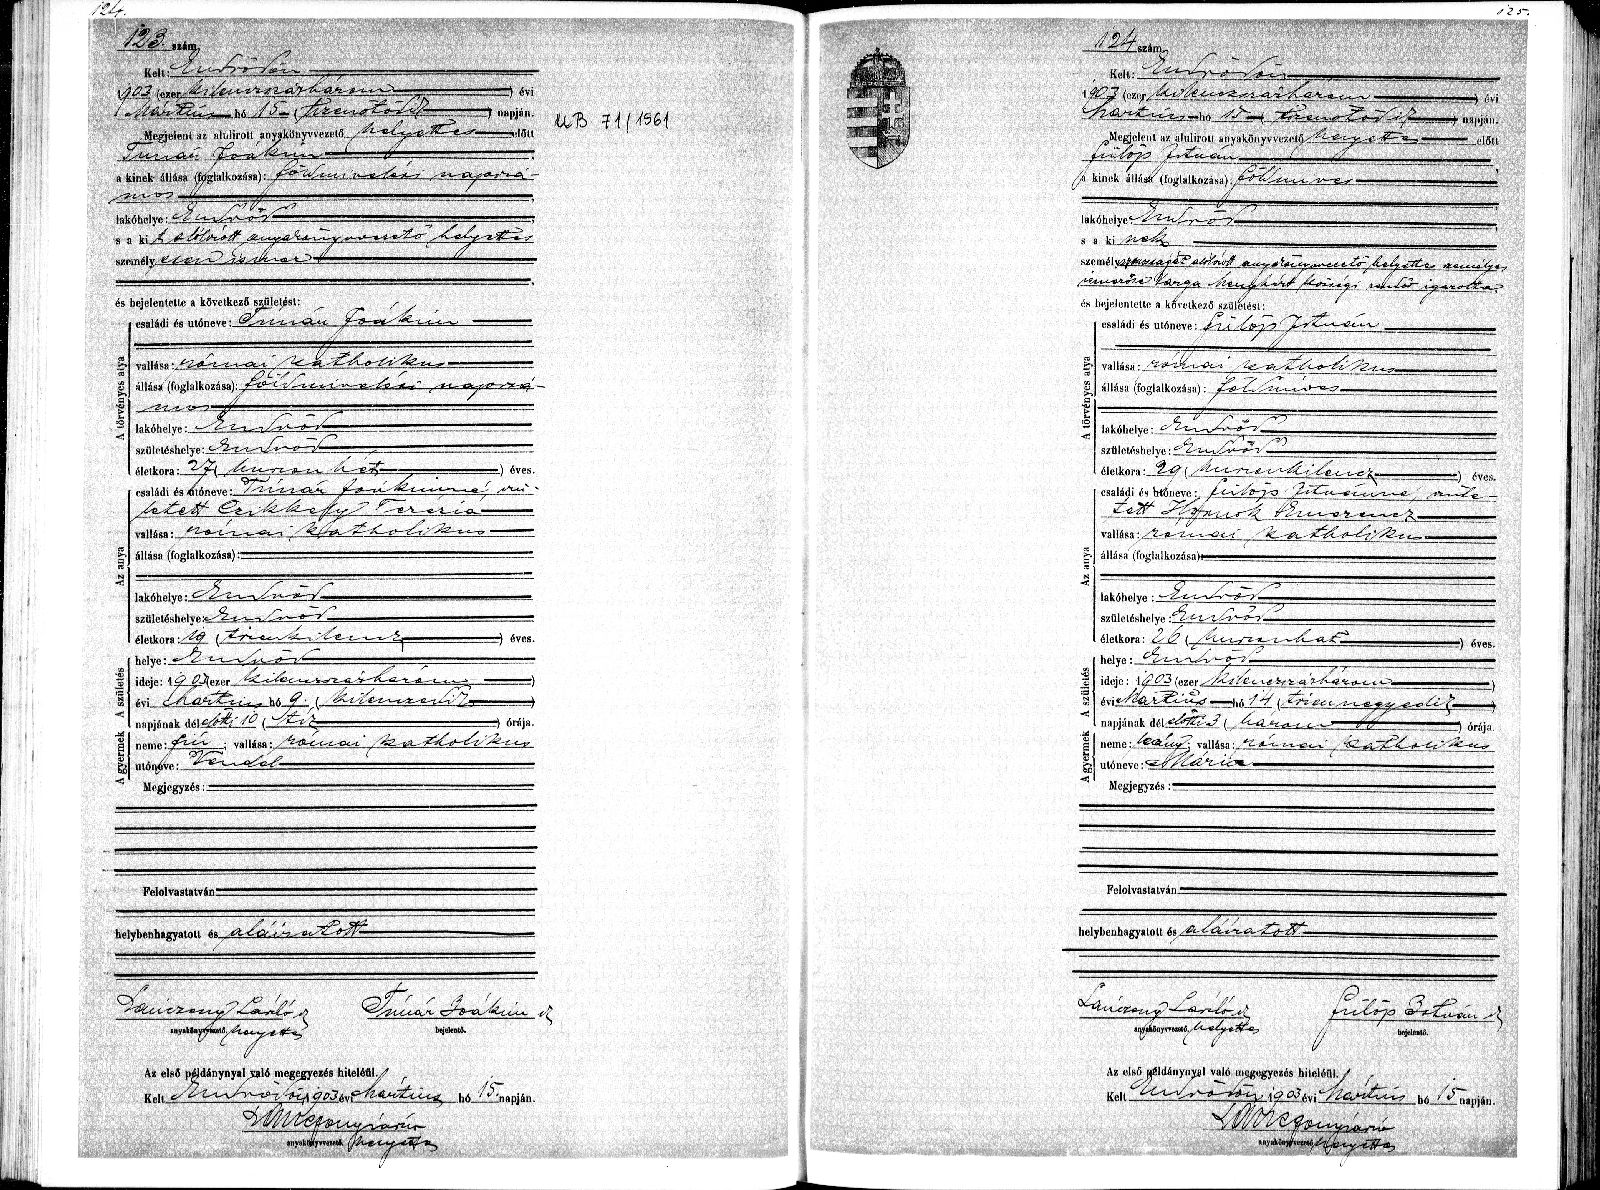 124.
123. szám
Kelt: Endrődön
1903 (ezer kilenczszázhárom) évi
Mártius hó 15 (tizenötödik) napján.
Megjelent az alulirott anyakönyvvezető helyettes előtt
Timár Joákim
a kinek állása (foglalkozása): földmivelési napszá-
mos
lakóhelye: Endrőd
s a kit alólirott anyakönyvvezető helyettes
személyesen ismer
és bejelentette a következő születést:
A törvényes atya
családi és utóneve: Timár Joákim
vallása: római katholikus
állása (foglalkozása): földmivelési napszá-
mos
lakóhelye: Endrőd
születéshelye: Endrőd
életkora: 27 (huszonhét) éves.
Az anya
családi és utóneve: Timár Joákimné, szü-
letett Czikkely Terézia
vallása: római katholikus
állása (foglalkozása):
lakóhelye: Endrőd
születéshelye: Endrőd
életkora: 19 (tizenkilencz) éves.
A születés
helye: Endrőd
ideje: 1903 (ezer kilenczszázhárom)
évi Mártius hó 9 (kilenczedik)
napjának délelőtti 10 (tíz) órája.
A gyermek
neme: fiú; vallása: római katholikus
utóneve: Vendel
Megjegyzés:
Felolvastatván
helybenhagyatott és aláiratott
László
Timár Joákim
anyakönyvvezető. helyettes
bejelentő.
Az első példánynyal való megegyezés hiteléül.
Kelt Endrődön 1903 évi Mártius hó 15 napján.
anyakönyvvezető. helyettes
MB 71/1961
125.
124 szám
Kelt: Endrődön
1903 (ezer kilenczszázhárom) évi
Mártius hó 15 (tizenötödik) napján.
Megjelent az alulirott anyakönyvvezető helyettes előtt
Fülöp István
a kinek állása (foglalkozása): földmives
lakóhelye: Endrőd
s a kinek
személyazonosságát alólirott anyakönyvvezető helyettes személyes
ismerőse Varga Menyhért községi rendőr igazolta.
és bejelentette a következő születést:
A törvényes atya
családi és utóneve: Fülöp István
vallása: római katholikus
állása (foglalkozása): földmives
lakóhelye: Endrőd
születéshelye: Endrőd
életkora: 29 (huszonkilencz) éves.
Az anya
családi és utóneve: Fülöp Istvánné, szüle-
tett Hornok Emerencz
vallása: római katholikus
állása (foglalkozása):
lakóhelye: Endrőd
születéshelye: Endrőd
életkora: 26 (huszonhat) éves.
A születés
helye: Endrőd
ideje: 1903 (ezer kilenczszázhárom)
évi Mártius hó 14 (tizennegyedik)
napjának délelőtti 3 (három) órája.
A gyermek
neme: leány; vallása: római katholikus
utóneve: Mária
Megjegyzés:
Felolvastatván
helybenhagyatott és aláiratott
László
Fülöp István
anyakönyvvezető. helyettes
bejelentő.
Az első példánynyal való megegyezés hiteléül.
Kelt Endrődön 1903 évi Mártius hó 15 napján.
anyakönyvvezető. helyettes